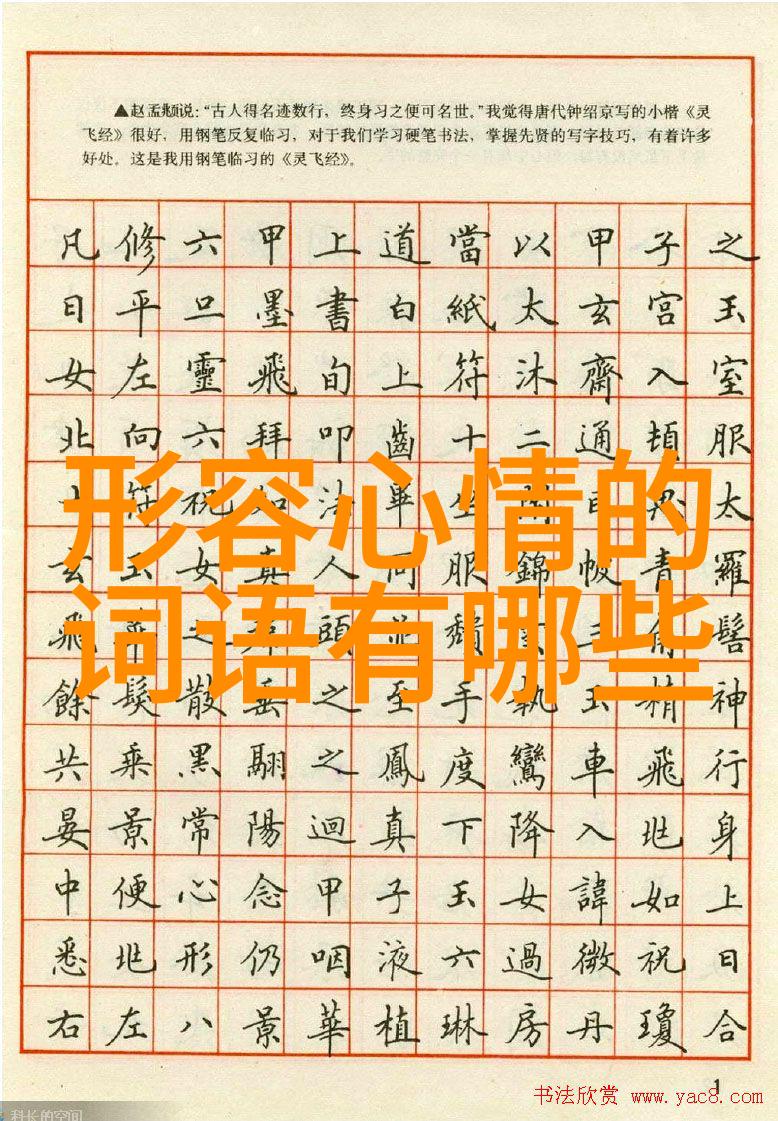 ▲赵孟頫说：“古人得名迹数行，终身习之便可名世。”我觉得唐代钟绍京写的小楷《灵
飞经》很好，用钢笔反复临习，对于我们学习硬笔书法，掌握先贤的写字技巧，有着许多
好处。这是我用钢笔临习的《灵飞经》。
凡修六甲上道當以甲子之
日平旦墨書白紙太玄宮玉
女左靈飛旬上符沐齋入室
北向六拜叩齒十二通頓服
形容心情的
十符祝如法畢坐閉目太
玄玉女真人同服錦帔青羅
词语有哪些
飛華之裙頭並頹雲三角髻
餘髮散垂之至手執玉精神
共乘黑翮之鳳度鸞車飛行
晏景常陽迴真下降入兆身
中便心念甲子玉女諱如上
悉兆形仍咽液六過微祝曰
右左八景華植琳房丹瓊合
1
书法欣赏 www.yac8.com
科长的空间